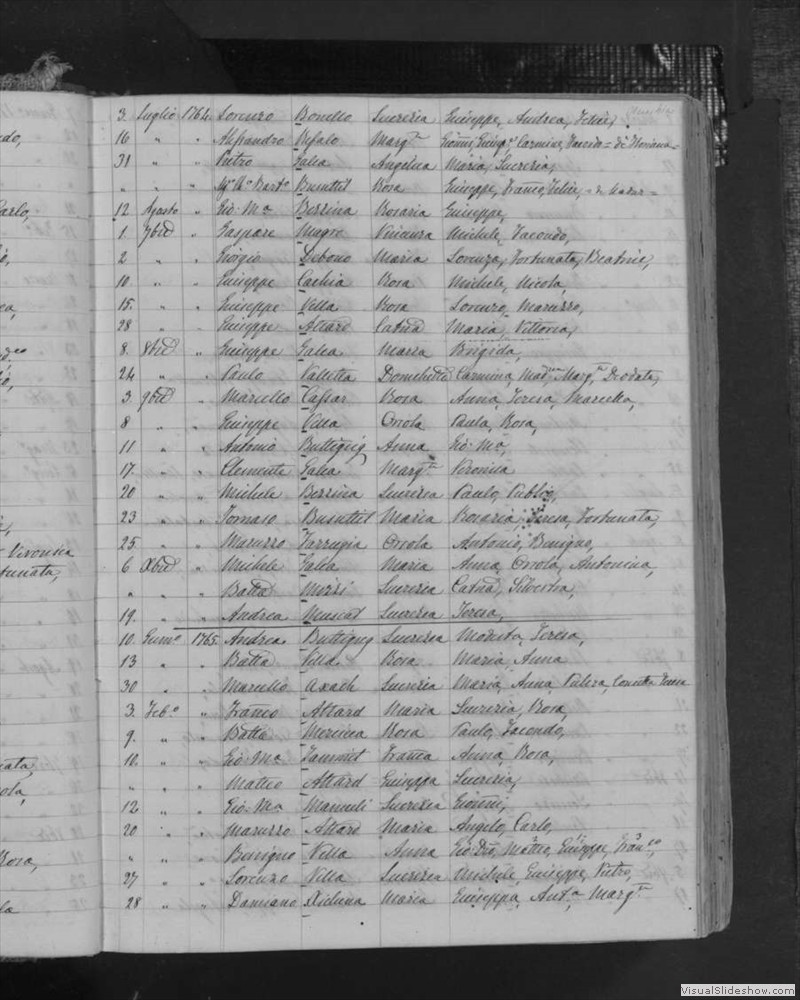 do,
Carlo,
ò,
ea,
rò,
Vironica
tunata,
nata,
ola,
Rosa,
la
3. Luglio 1764. Lorenzo Bonello Lucrezia Giuseppe, Andrea, Felice,
16 " " Alessandro Refalo Marg.ta Carmine,
31 " " Pietro Galea Angelica Maria, Lucrezia,
" " " Busuttil Rosa Giuseppe, Franco, Felice,
12 Agosto " Gio: Ma Berrina Rosaria Giuseppe,
1. 7bre " Gaspare Magro Vincenza Michele, Facondo,
2 " " Giorgio Debono Maria Lorenza, Fortunata, Beatrice,
10. " " Giuseppe Cachia Rosa Michele, Nicola,
15. " " Giuseppe Vella Rosa Lorenzo, Maruzzo,
28 " " Giuseppe Attard Catna Maria, Vittoria,
8. 8bre " Giuseppe Galea Maria Brigida,
24 " " Paulo Valletta Carmina, Marg.ta Diodata,
3. 9bre " Marcello Caspar Rosa Anna, Teresa, Marcella,
8 " " Giuseppe Vella Orsola Paula, Rosa,
11 " " Antonio Buttigieg Anna Gio: Ma,
17. " " Clemente Galea Marg.ta Vironica
20 " " Michele Berrina Lucrezia Paulo, Publio,
23 " " Tomaso Busuttil Maria Rosaria, Teresa, Fortunata,
25. " " Maruzzo Farrugia Orsola Antonio, Benigno,
6 Xbre " Michele Galea Maria Anna, Orsola, Antonina,
" " " Batta Lucrezia Catna, Silvestra,
19. " " Andrea Muscat Lucrezia Teresa,
10. Genno 1765. Andrea Buttigieg Lucrezia Modesta, Teresa,
13 " " Batta Vella Rosa Maria, Anna
30 " " Marcello Axach Lucrezia Maria, Anna,
3. Febo " Franco Attard Maria Lucrezia, Rosa,
9. " " Batta Mercieca Rosa Paulo, Facondo,
10. " " Gio: Ma Franca Anna, Rosa,
" " " Matteo Attard Giuseppa Lucrezia,
12. " " Gio: Ma Mamuli Lucrezia Gionni,
20 " " Maruzzo Attard Maria Angelo, Carlo,
" " " Benigno Vella Anna Matteo, Giuseppe,
27 " " Lorenzo Vella Lucrezia Michele, Giuseppe, Pietro,
28 " " Damiano Xicluna Maria Giuseppa, Anta, Marg.ta
VisualSlideshow.com